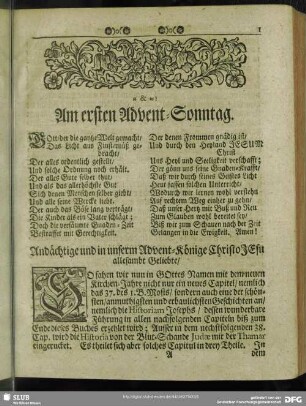 1
Am ersten Advent-Sonntag.
GOtt/der die gantze Welt gemacht/
Das Licht aus Finsternüß gebracht/
Der alles ordentlich gestelt/
und solche Ordnung noch erhält.
Der alles Gute selber thut/
Und als das allerhöchste Gut
Sich denen Menschen selber giebt/
Und alle seine Wercke liebt.
Der auch das Böse lang verträgt/
Die Kinder als ein Vater schlägt;
Doch die versäumte Gnaden-Zeit
Bestraffet mit Gerechtigkeit.
Der denen Frommen gnädig ist/
Und durch den Heyland JESUM Christ
Uns Heyl und Seeligkeit verschafft;
Der gönn uns seine Gnaden-Kraft/
Daß wir durch seines Geistes Licht
Heut fassen solchen Unterricht/
Wodurch wir lernen wohl verstehn
Auf rechtem Weg einher zu gehn/
Daß unser Hertz mit Buß und Reu
Zum Glauben wohl bereitet sey/
Biß wir zum Schauen nach der Zeit
Gelangen in die Ewigkeit. Amen!
Andächtige und in unserm Advent-Könige Christo JEsu
allesamt Geliebte/
SO sehen wir nun in GOttes Namen mit dem neuen
Kirchen-Jahre nicht nur ein neues Capitel/ nemlich
das 37. des 1. B. Mosis/ sondern auch eine der schönsten/
anmuthigsten und erbaulichsten Geschichten an/
nemlich die Historiam Josephs/ dessen wunderbare
Führung in allen nachfolgenden Capiteln biß zum
Ende dieses Buches erzehlet wird; Ausser in dem nechstfolgenden 38.
Cap. wird die Historia von der Blut-Schande Judæ mit der Thamar
eingerucket. Es theilet sich aber solches Capitul in drey Theile. In
A dem
SLUB
Wir führen Wissen.
gefördert von der
DFG